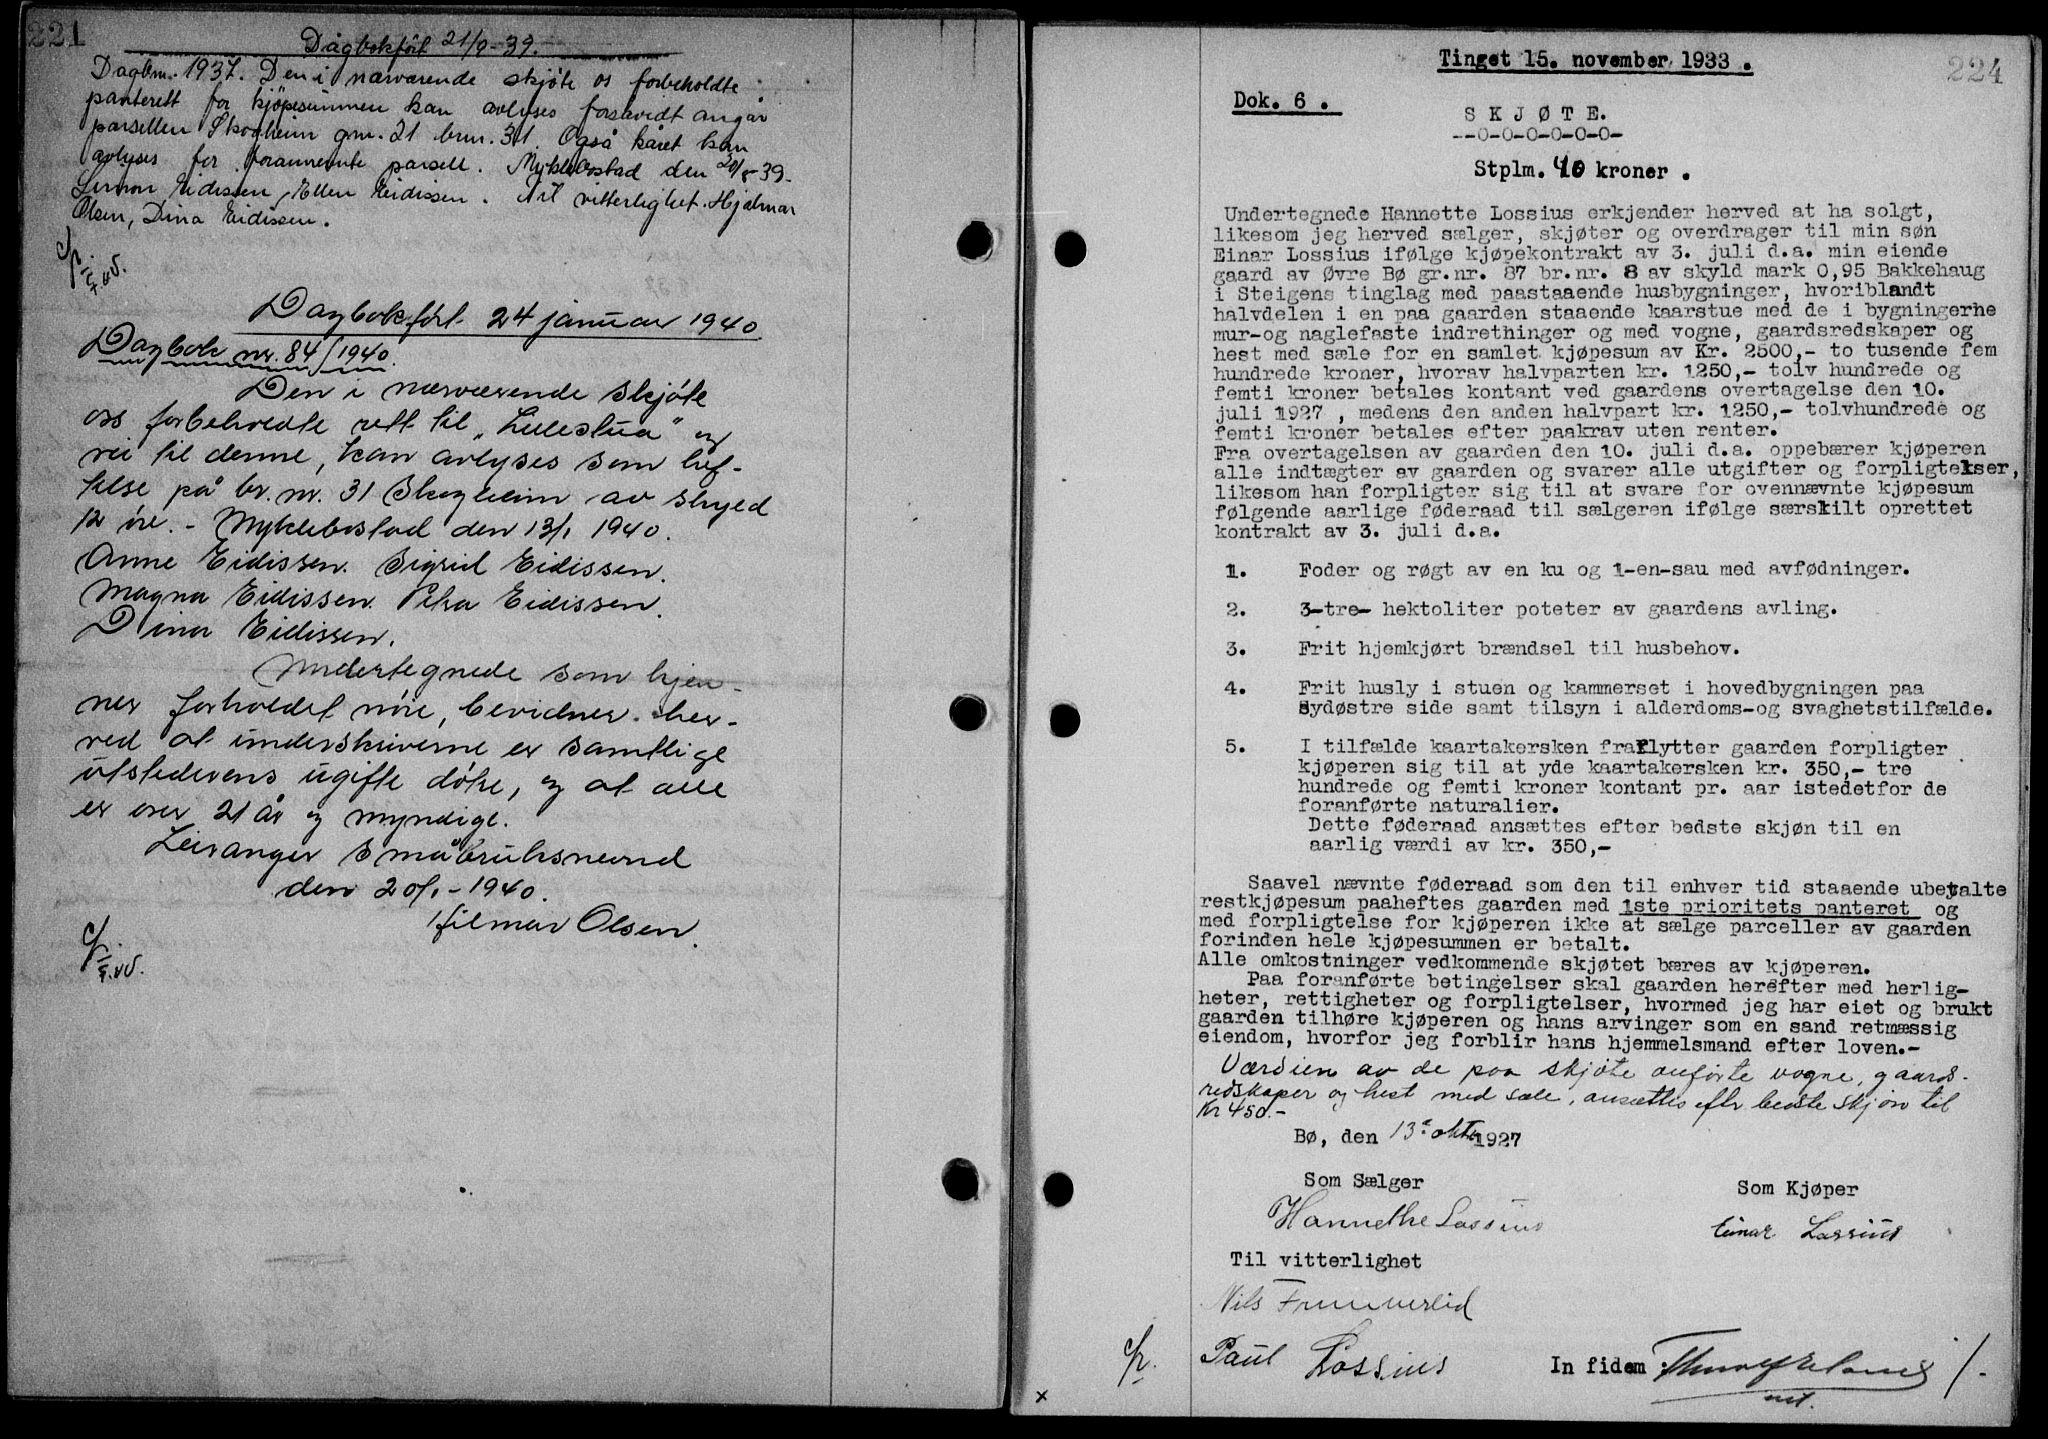 221
Dagbokført 21/9-39.
Dagbnr. 1937. Den i nærværende skjøte os forbeholdte
panterett for kjøpesummen kan avlyses forsåvidt angår
parsellen Skogheim gnr. 21 brnr. 31. Også kåret kan
avlyses for forannevnte parsell. Myklebostad den 20/8-39.
Simon Eidissen, Ellen Eidissen. Til vitterlighet. Hjalmar
Olsen, Dina Eidissen.
Dagbokført 24 januar 1940
Dagbok nr. 84/1940.
Den i nærværende skjøte
oss forbeholdte rett til „Lillestua" og
vei til denne, kan avlyses som hef-
telse på br. nr. 31 Skogheim av skyld
12 øre. - Myklebostad den 13/1 1940.
Anne Eidissen. Sigrid Eidissen.
Magna Eidissen. Petra Eidissen.
Dina Eidissen.
Undertegnede som kjen-
ner forholdet nøie, bevidner her-
ved at underskriverne er samtlige
utstederens ugifte døtre, og at alle
er over 21 år og myndige.
Leiranger Småbruksnevnd
den 20/1-1940.
Hilmar Olsen.
224
Tinget 15. november 1933.
Dok. 6.
SKJØTE.
--0-0-0-0-0-0-
Stplm. 10 kroner.
Undertegnede Hannette Lossius erkjender herved at ha solgt,
likesom jeg herved sælger, skjøter og overdrager til min søn
Einar Lossius ifølge kjøpekontrakt av 3. juli d.a. min eiende
gaard av Øvre Bø gr.nr. 87 br.nr. 8 av skyld mark 0,95 Bakkehaug
i Steigens tinglag med paastaaende husbygninger, hvoriblandt
halvdelen i en paa gaarden staaende kaarstue med de i bygningerne
mur-og naglefaste indrethinger og med vogne, gaardsredskaper og
hest med sæle for en samlet kjøpesum av Kr. 2500,- to tusende fem
hundrede kroner, hvorav halvparten kr. 1250,- tolv hundrede og
femti kroner betales kontant ved gaardens overtagelse den 10.
juli 1927 , medens den anden halvpart kr. 1250,- tolvhundrede og
femti kroner betales efter paakrav uten renter.
Fra overtagelsen av gaarden den 10. juli d.a. oppebærer kjøperen
alle indtægter av gaarden og svarer alle utgifter og forpligtelser,
likesom han forpligter sig til at svare for ovennævnte kjøpesum
følgende aarlige føderaad til sælgeren ifølge særskilt oprettet
kontrakt av 3. juli d.a.
1. Foder og røgt av en ku og 1-en-sau med avfødninger.
2. 3-tre- hektoliter poteter av gaardens avling.
3. Frit hjemkjørt brændsel til husbehov.
4. Frit husly i stuen og kammerset i hovedbygningen paa
sydøstre side samt tilsyn i alderdoms-og svaghetstilfælde.
5. I tilfælde kaartakersken fraflytter gaarden forpligter
kjøperen sig til at yde kaartakersken kr. 350,- tre
hundrede og femti kroner kontant pr. aar istedetfor de
foranførte naturalier.
Dette føderaad ansættes efter bedste skjøn til en
aarlig værdi av kr. 350,-
Saavel nævnte føderaad som den til enhver tid staaende ubetalte
restkjøpesum paaheftes gaarden med 1ste prioritets panteret og
med forpligtelse for kjøperen ikke at sælge parceller av gaarden
forinden hele kjøpesummen er betalt.
Alle omkostninger vedkommende skjøtet bæres av kjøperen.
Paa foranførte betingelser skal gaarden herefter med herlig-
heter, rettigheter og forpligtelser, hvormed jeg har eiet og brukt
gaarden tilhøre kjøperen og hans arvinger som en sand retmæssig
eiendom, hvorfor jeg forblir hans hjemmelsmand efter loven.-
Værdien av de paa skjøte anførte vogne, gaards-
redskaper og hest med sæle, ansættes efter bedste skjøn til
Kr 450.-
Bø, den 13de oktbr 1927
Som Sælger
Som Kjøper
Hannethe Lossius
Einar Lossius
Til vitterlighet
Nils
Paul Lossius
In fidem